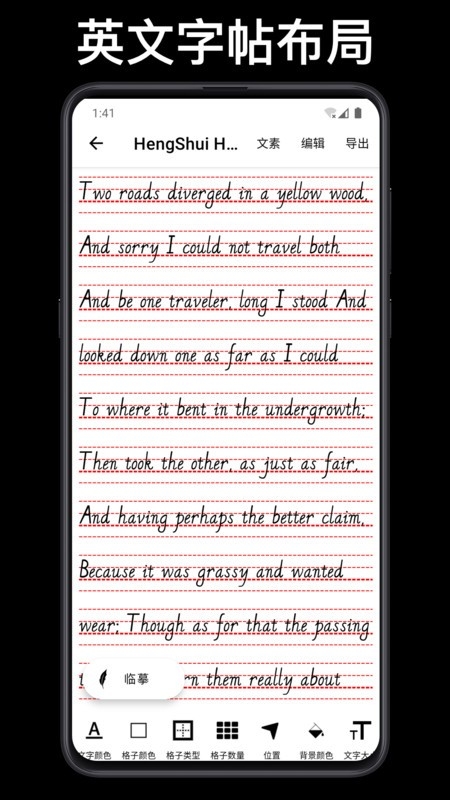 英文字帖布局
1:41
HengShui H... 文素 编辑 导出
Two roads diverged in a yellow wood,
And sorry I could not travel both
And be one traveler, long I stood And
looked down one as far as I could
To where it bent in the undergrowth;
Then took the other, as just as fair,
And having perhaps the better claim,
Because it was grassy and wanted
wear; Though as for that the passing
them really about
临摹
文字颜色 格子颜色 格子类型 格子数量 位置 背景颜色 文字大